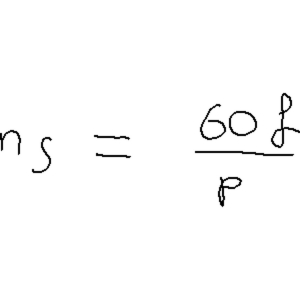 ns = 60f/p